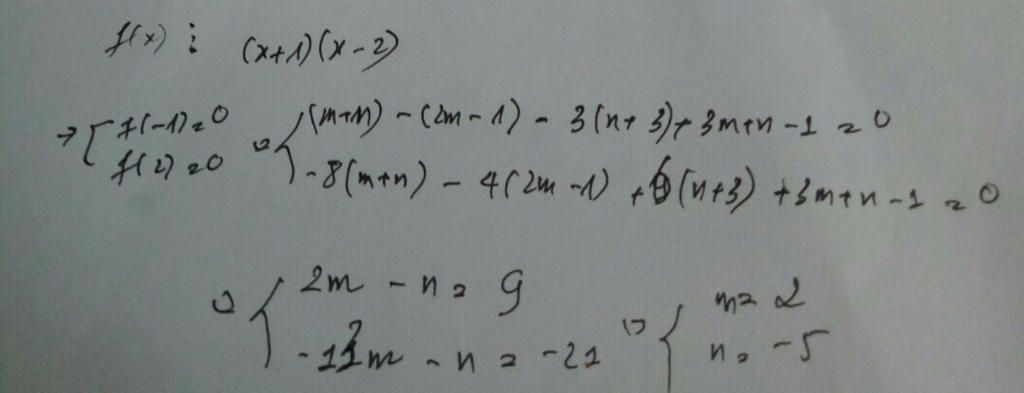 f(x) ⋮ (x+1)(x-2)
→ [ f(-1)=0 ⇔ { (m+n) - (2m-1) - 3(n+3)+3m+n-1=0
f(2)=0 -8(m+n) - 4(2m-1) +6(n+3) +3m+n-1=0
⇔ { 2m - n = 9 ⇔ { m= 2
-13m - n = -21 n= -5